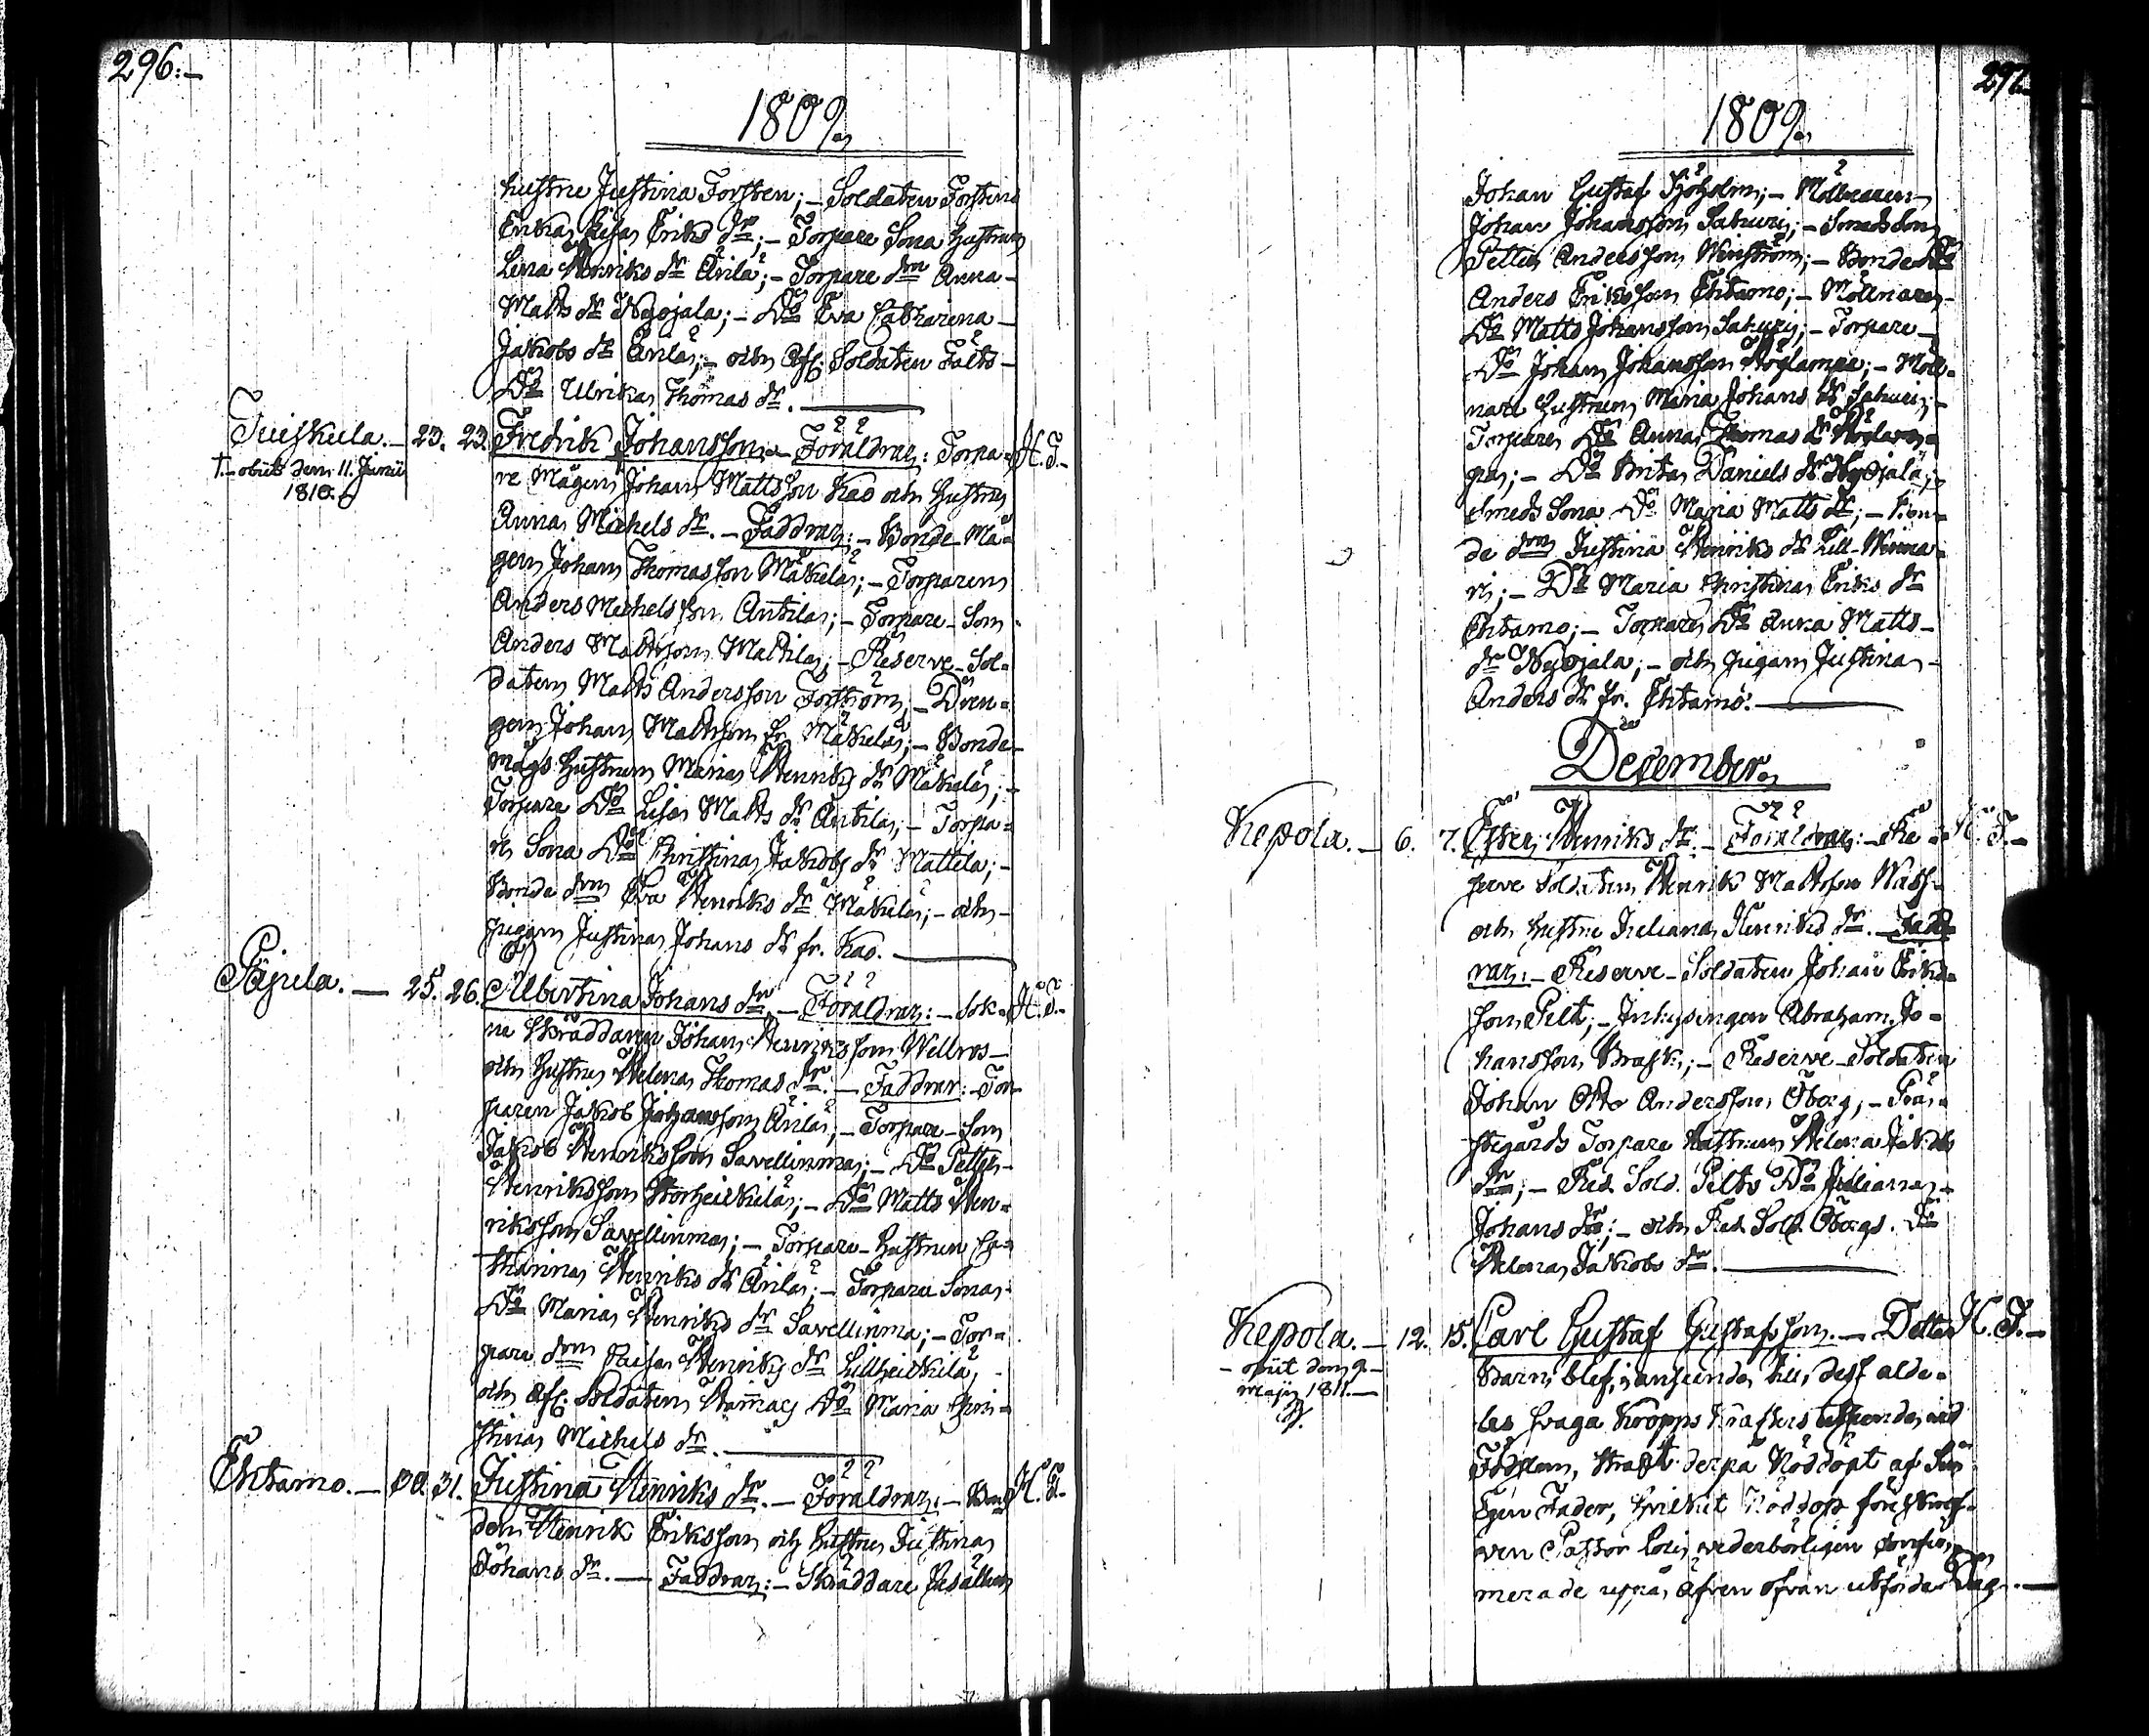 296:–
1809.
hustru Justina Forsten; – Soldaten Forstens
Enka Lisa Eriks dr; – Torpare Sona Hustrun
Lena Henriks dr Ärilä; – Torpare drn Anna
Matts dr Nyojala; – Do Eva Catharina
Jakobs dr Ärilä; – och Afsk. Soldaten Fälts
Do Ulrika Thomas dr.
Tuiskula. – 23. 23. Fredrik Johansson. – Föräldrar: Torpa= H. T.
†. – obiit dem 11. Junii
1810.
re Mågen Johan Mattsson Kao och Hustru
Anna Michels dr. – Faddrar: – Bonde Må=
gen Johan Thomasson Mäkelä; – Torparen
Anders Michelsson Antila; – Torpare Son
Anders Mattsson Mattila; – Reserve Sol=
daten Matts Andersson Forström; – Drän=
gen Johan Mattsson fr. Mäkelä; – Bonde
mågs Hustrun Maria Henriks dr Mäkelä; –
Torpare Do Lisa Matts dr Antila; – Torpa=
re Sona Do Christina Jakobs dr Mattila; –
Bonde drn Eva Henriks dr Mäkelä; – och
Pigan Justina Johans dr fr. Kao.
Päjula. – 25. 26. Albertina Johans dr. – Föräldrar: – Sok= H. T.
ne Skräddaren Johan Henriksson Wellros
och Hustru Helena Thomas dr. – Faddrar: – Tor=
paren Jakob Johansson Ärilä; – Torpare Son
Jakob Henriksson Savellinma; – Do Petter
Henriksson Storheikkilä; – Do Matts Hen=
riksson Savellinma; – Torpare Hustrun Ca=
tharina Henriks dr Ärilä; – Torpare Sonas
Do Maria Henriks dr Savellinma; – Tor=
pare drn Henriks dr Lillheikkilä;
och Afsk. Soldaten Do Maria Chri=
stina Michels dr.
Ehtamo. – 30. 31. Justina Henriks dr. – Föräldrar: – Bon= H. T.
den Henrik Eriksson och Hustru Justina
Johans dr. – Faddrar: – Skräddare Gesällen
297.
1809.
Johan Gustaf Sjöholm; – Möllnaren
Johan Johansson Sakuri; – Smeds Son
Petter Andersson Winström; – Bonde Do
Anders Eriksson Ehtamo; – Möllnare
Do Matts Johansson Sakuri; – Torpare
Do Johan Johansson; – Möll=
nare Hustrun Maria Johans dr Sakuri; –
Torpare Do Anna Thomas dr
; – Do Brita Daniels dr Nyojala; –
Smeds Sona Do Maria Matts dr; – Bon=
de drn Justina Henriks dr Lill-Winna=
ri; – Do Maria Christina Eriks dr
Ehtamo; – Torpare Do Anna Matts
dr Nyojala; – och Pigan Justina
Anders dr fr. Ehtamo.
December.
Kepola. – 6. 7. Ester Henriks dr. – Föräldrar: – Re= H. T.
serve Soldaten Henrik Mattsson Wass
och Hustru Juliana Henriks dr. – Fadd=
rar: – Reserve Soldaten Johan Eriks=
son Pilt; – Inhysingen Abraham Jo=
hansson Brask; – Reserve Soldaten
Johan Otto Andersson Öberg; – Prä=
stegårds Torpare Hustrun Helena Jakobs
dr; – Res. Sold. Pilts Do Juliana
Johans dr; – och Res. Sold. Öbergs Do
Helena Jakobs dr.
Kepola. – 12. 15. Carl Gustaf Gustafsson. – Detta H. T.
– obiit den 9
Maji 1811.
Barn blef, i anseende till dess alde=
les svaga Kropps Krafters tillstånd vid
Födslen, straxt derpå Nöddöpt af Sin
Egen Fader, hvilket Nöddop föreskref=
ven Pastor Loci vederbörligen confir=
merade uppå äfven ofvan utförde Dag.